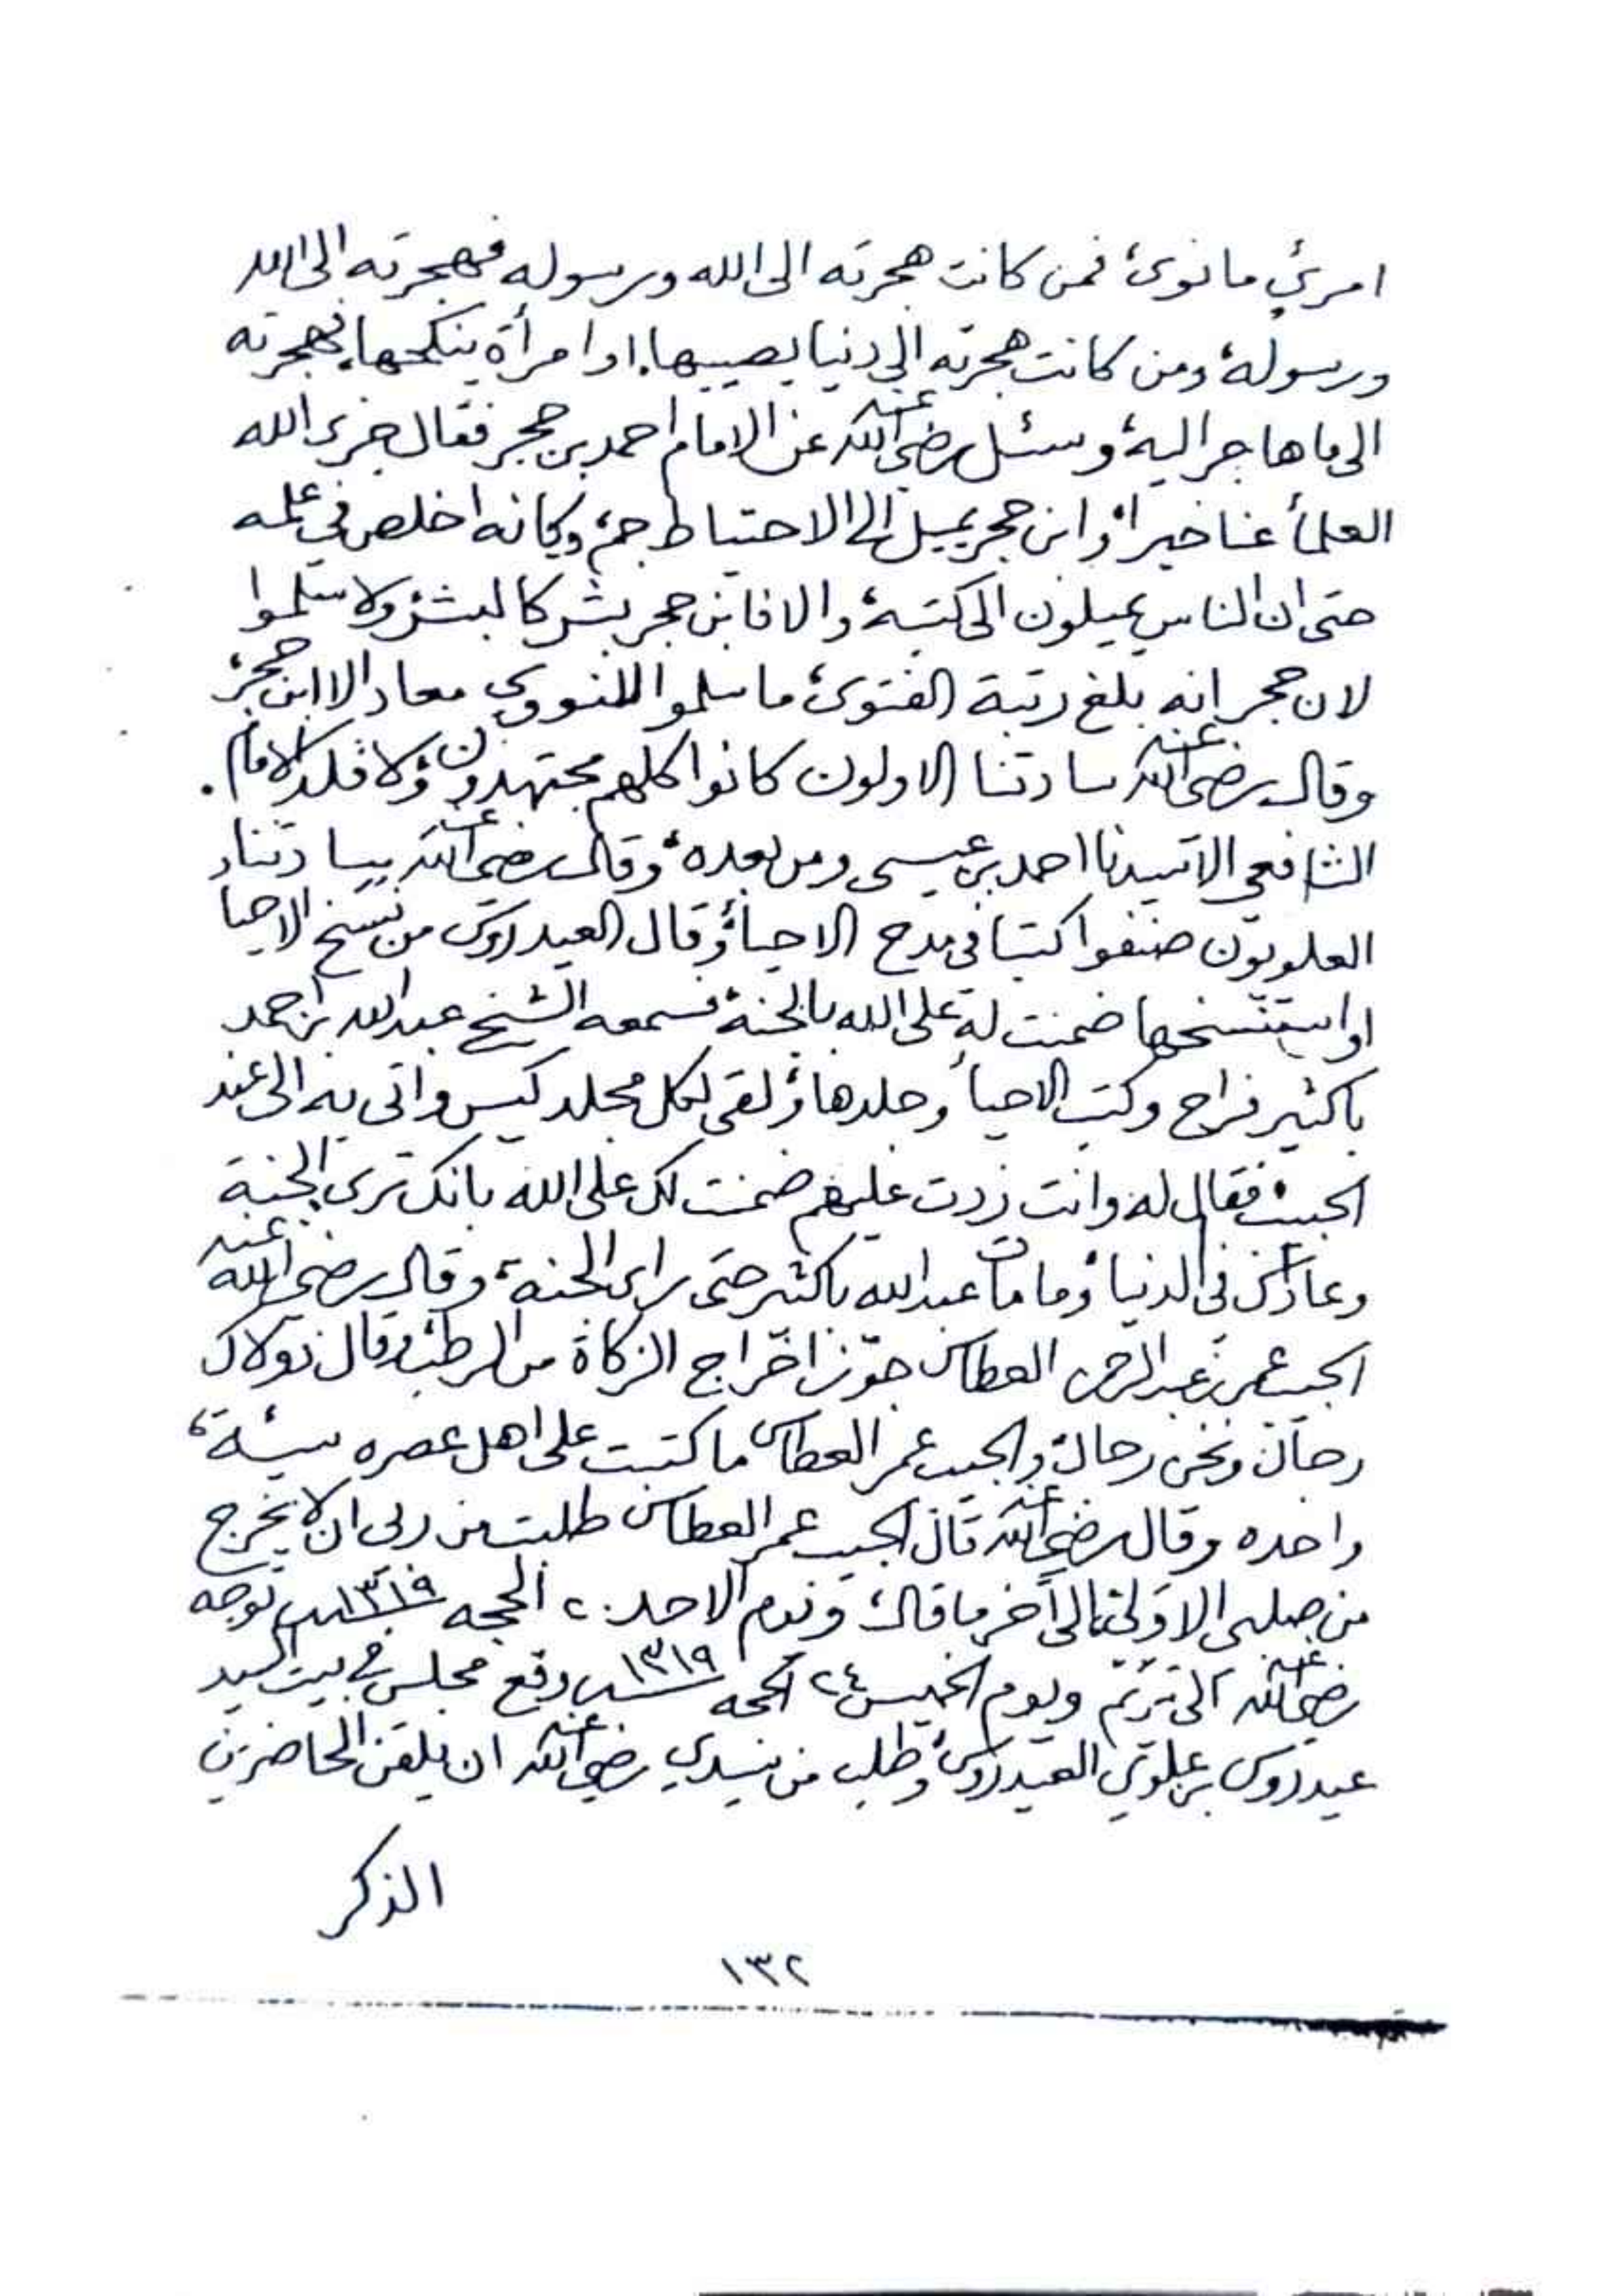 امرئ ما نوى، فمن كانت هجرته الى الله ورسوله فهجرته الى الله
ورسوله، ومن كانت هجرته الى دنيا يصيبها، او امرأة ينكحها، فهجرته
الى ما هاجر اليه، وسئل رضي الله عنه عن الامام احمد بن حجر فقال جزى الله
العلمأ عنا خيرا، وابن حجر يميل الى الاحتياط جم، وكانه اخلص في علمه
حتى ان الناس يميلون الى كتبه، والا فابن حجر بشر كالبشر، ولا سلموا
لابن حجر انه بلغ رتبة الفتوى، ما سلموا للنووي معاد الا ابن حجر،
وقال رضي الله عنه سادتنا الاولون كانوا كلهم مجتهدون، ولا قلد الامام
الشافعي الا سيدنا احمد بن عيسى ومن بعده، وقال رضي الله عنه سادتنا
العلويون صنفوا كتبا في مدح الاحيأ، وقال العيدروس من نسخ الاحيا
او استنسخها ضمنت له على الله بالجنة، فسمعه الشيخ عبدالله بن احمد
باكثير فراح وكتب الاحيأ وجلدها، ولقى لكل مجلد كيس واتى به الى عند
الحبيب، فقال له وانت زدت عليهم ضمنت لك على الله بانك ترى الجنة
وعادك في الدنيا، وما مات عبدالله باكثير حتى راى الجنة، وقال رضي الله عنه
الحبيب عمر بن عبدالرحمن العطاس جوّز اخراج الزكاة من الرطب، وقال ذولاك
رجال ونحن رجال، والحبيب عمر العطاس ما كتبت على اهل عصره سيئة،
واحده وقال رضي الله عنه قال الحبيب عمر العطاس طلبت من ربي ان لا يخرج
من صلبي الا ولي، الى آخر ما قال، ويوم الاحد ٢٠ الحجه سنة ١٣١٩ توجه
رضي الله عنه الى تريم ويوم الخميس ٢٤ الحجه سنة ١٣١٩ وقع مجلس في بيت السيد
عيدروس بن علوي العيدروس، وطلب من سيدي رضي الله عنه ان يلقن الحاضرين
الذكر
١٣٢